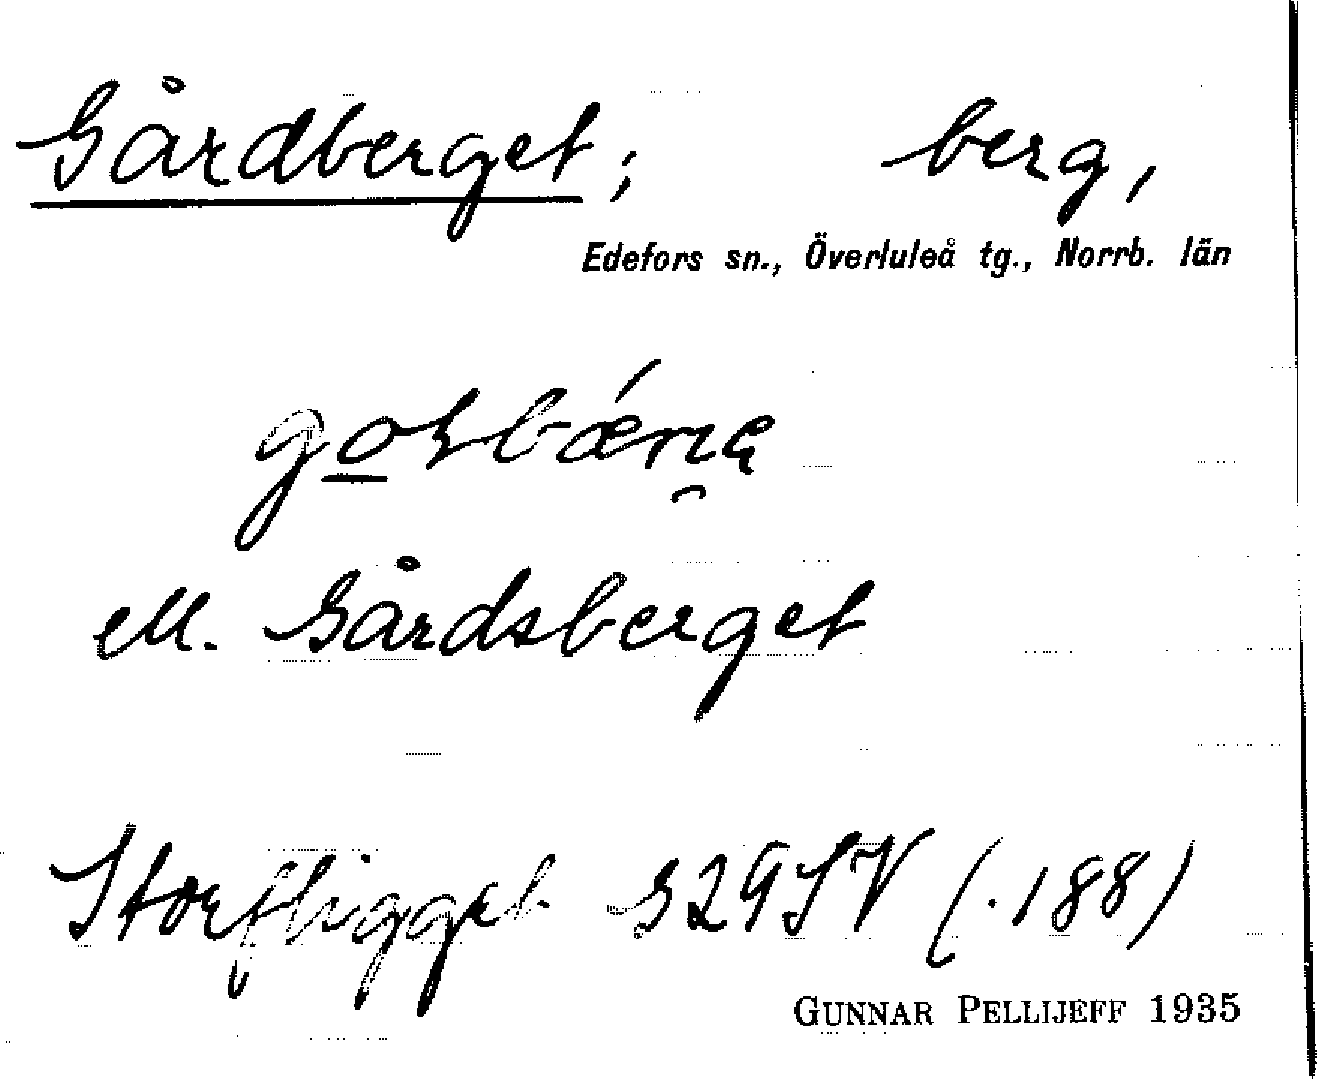 Gårdberget; berg,
Edefors sn., Överluleå tg., Norrb. län
eM. Gårdsberget
Storfligget 329SV (.188)
GUNNAR PELLIJEFF 1935